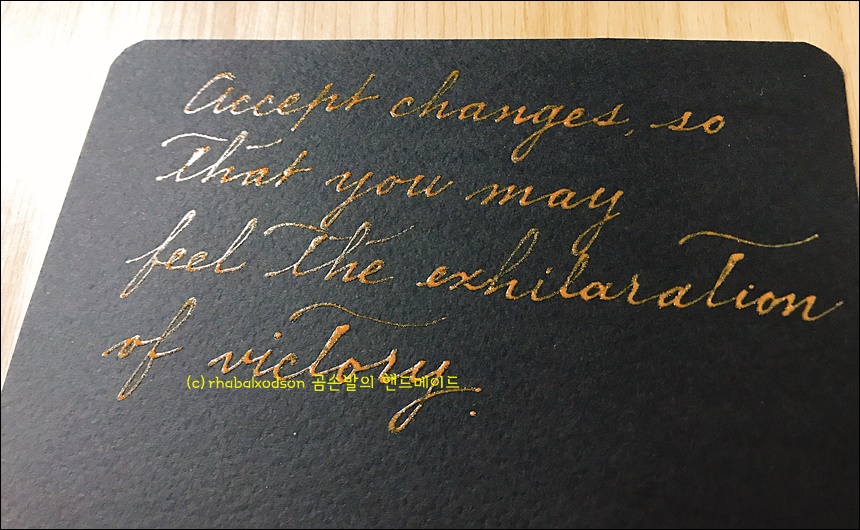 Accept changes, so
that you may
feel the exhilaration
of victory.
(c) rhabalxodson 곰손발의 핸드메이드